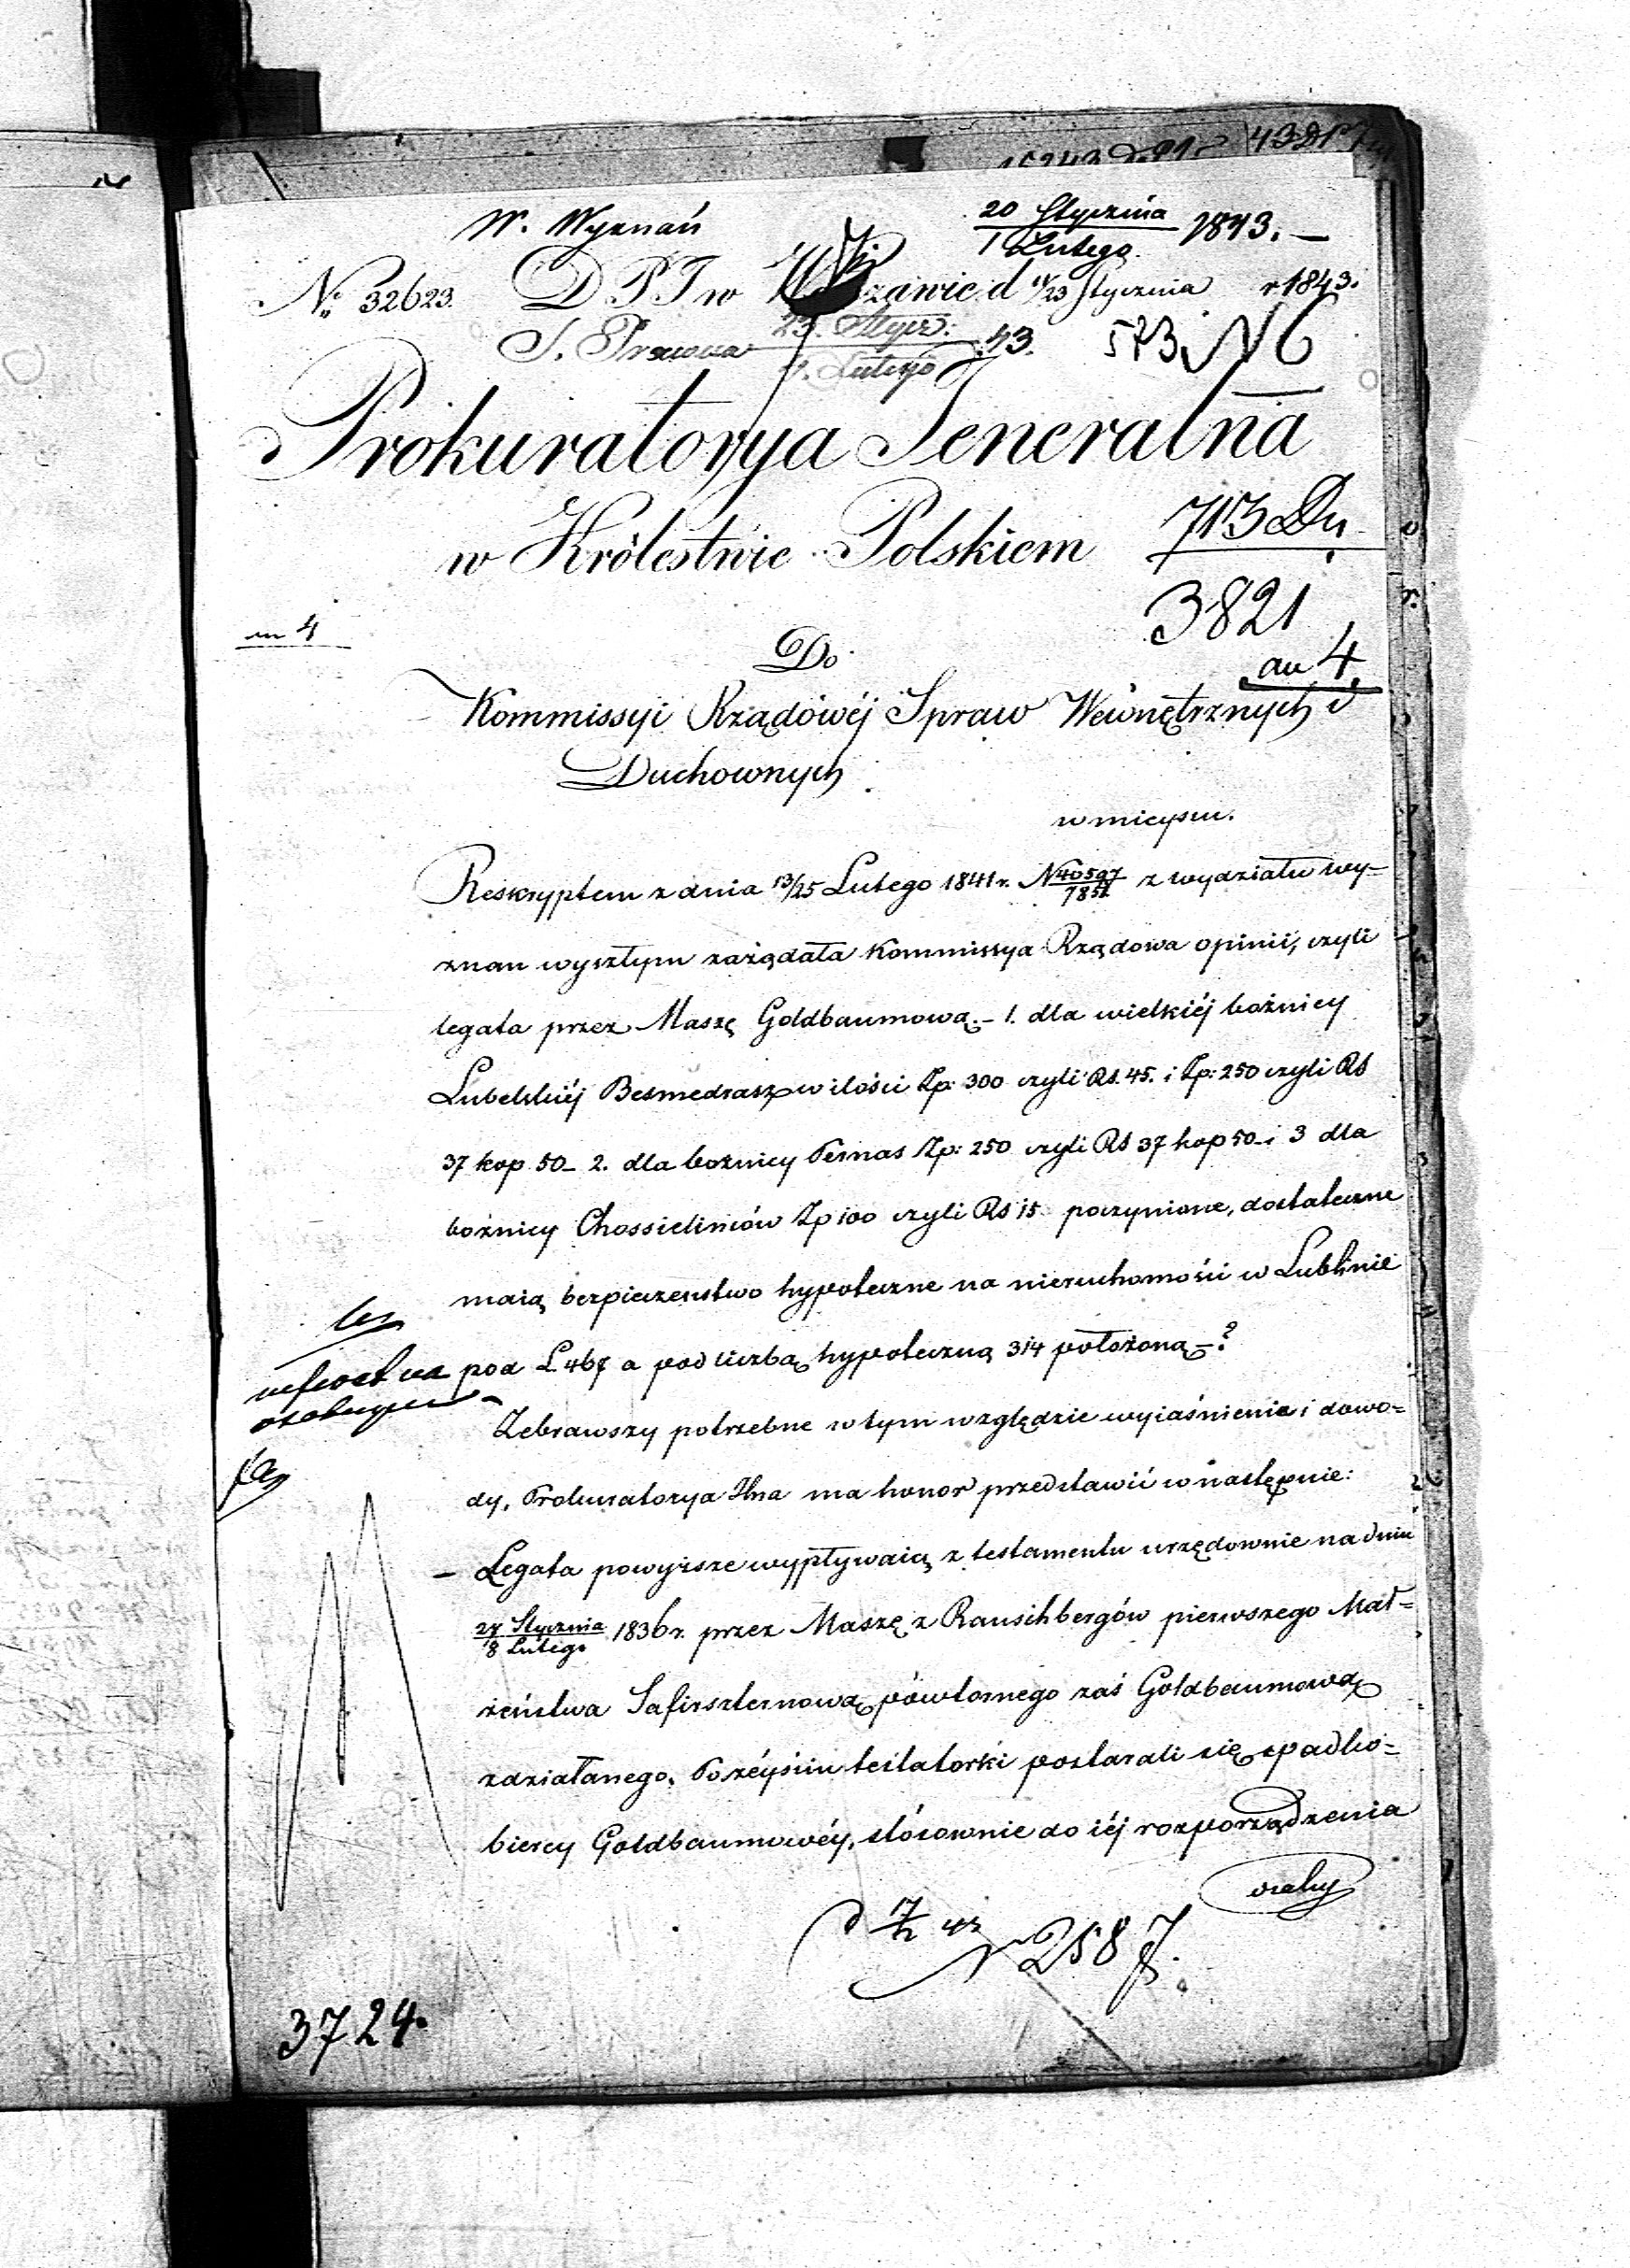 W. Wyznań
20 Stycznia
1 Lutego 1843. —
No 32623. D P J w Warszawie d 11/23 Stycznia r 1843.
S. Prawna 43. 573
Prokuratorya Jeneralna
w Królestwie Polskiem
713
3821
4
Do
Kommissyi Rządowéj Spraw Wewnętrznych i
Duchownych
w mieyscu.
Reskryptem z dnia 13/25 Lutego 1841 r. N z wydziału wy-
znan wyszłym zażądała Kommissya Rządowa opinii, czyli
legata przez Maszę Goldbaumową. - 1. dla wielkiéj bożnicy
Lubelskiéj Besmedrasz w ilości Zp: 300 czyli Rs. 45. i Zp: 250 czyli Rs
37 kop 50 - 2. dla bożnicy Pernas Zp: 250 czyli Rs 37 kop 50 - i 3 dla
bożnicy Chossidimów Zp 100 czyli Rs 15 poczynione, dostateczne
maią bezpieczenstwo hypoteczne na nieruchomości w Lublinie
pod L 467 a pod liczbą hypoteczną 314 położoną - ?
Zebrawszy potrzebne w tym względzie wyiaśnienia i dowo=
dy, Prokuratorya Jlna ma honor przedstawić w następnie:
- Legata powyższe wypływaią z testamentu urzędownie na dniu
27 Stycznia
8 Lutego 1836 r. przez Maszę z Rauschbergów pierwszego Mał=
żeństwa Safirszternową, powtórnego zaś Goldbaumową
zdziałanego. Po zéyściu testatorki postarali się spadko=
biercy Goldbaumowéy, stósownie do iéj rozporządzenia
N 2587.
3724.